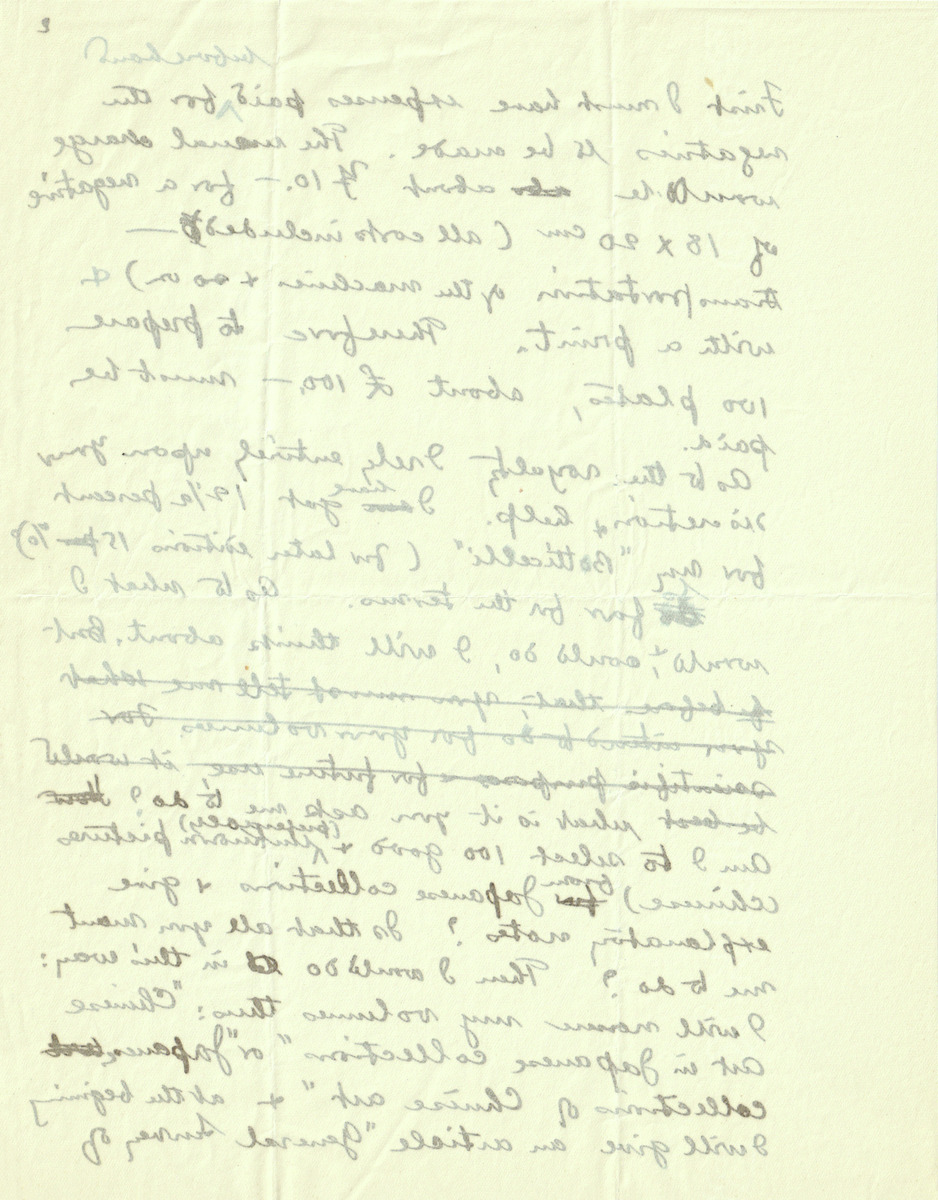 2
beforehand
First I must have expenses paid for the
negatives to be made. The usual charge
would be about ¥ 10.— for a negative
of 18 x 20 cm (all costs included —
transportation of the machines + so on) &
with a print. Therefore to prepare
100 plates, about £ 100.— must be
paid.
As to the royalty I rely entirely upon your
discretion & help. I have got 12½ percent
for my "Botticelli" (for later editions 15 %)
far for the terms. As to what I
would, & could do, I will think about. But
before that, you must tell me what
you intend to do for your volumes. For
scientific purposes & for future use, it would
be best what is it you ask me to do?
Am I to select 100 good & unknown pictures
(Chinese) from Japanese collections & give
explanatory notes? Is that all you want
me to do? Then I would do in this way:
I will name my volumes thus: "Chinese
art in Japanese collections" or "Japanese
collections of Chinese art" & at the begining
I will give an article "General Survey of